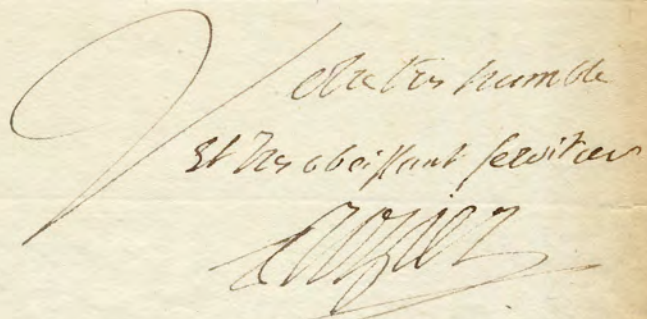 Votre tres humble
Et tres obeissant serviteur